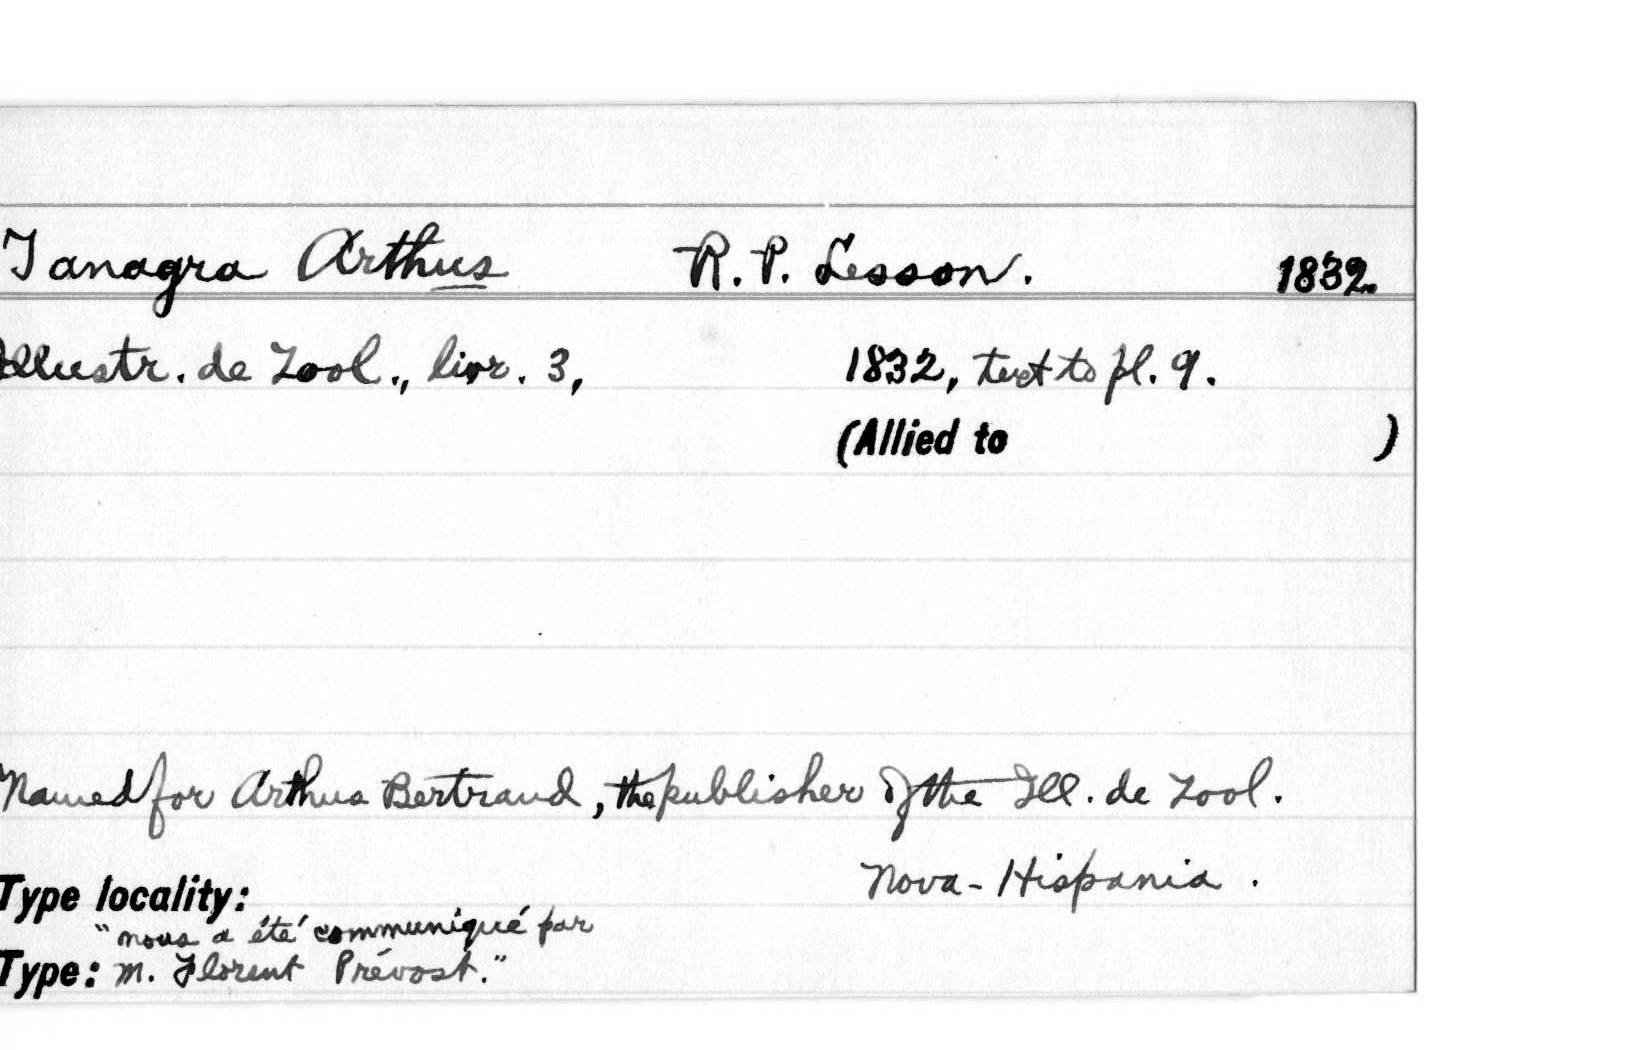 Tanagra Arthus R. P. Lesson. 1832.
Illustr. de Zool., livr. 3, 1832, text to pl. 9.
(Allied to )
Named for Arthus Bertrand, the publisher of the Ill. de Zool.
Nova-Hispania.
Type locality:
"nous a été communiqué par
Type: M. Florent Prévost."